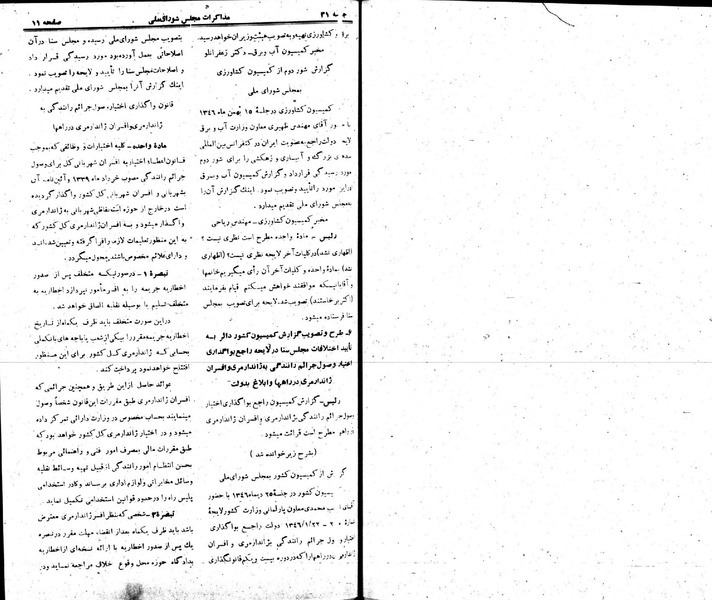 جلسه ۳۱ مذاکرات مجلس شورایملی صفحه ۱۱
برق و کشاورزی تهیه و به تصویب هیئت وزیران خواهد رسید.
مخبر کمیسیون آب و برق ـ دکتر زعفرانلو
گزارش شور دوم از کمیسیون کشاورزی
بمجلس شورای ملی
کمیسیون کشاورزی در جلسه ۱۵ بهمن ماه ۱۳۴۶
با حضور آقای مهندس ظهیری معاون وزارت آب و برق
لایحه دولت راجع به عضویت ایران در کنفرانس بین‌المللی
سدهای بزرگ و آبیاری و زهکشی را برای شور دوم
مورد رسیدگی قرار داد و گزارش کمیسیون آب و برق
در این مورد را تأیید و تصویب نمود. اینک گزارش آنرا
بمجلس شورای ملی تقدیم میدارد.
مخبر کمیسیون کشاورزی ـ مهندس ریاحی
رئیس ـ ماده واحده مطرح است نظری نیست؟
(اظهاری نشد) در کلیات آخر لایحه نظری نیست؟ (اظهاری
نشد) ماده واحده و کلیات آخر آن رأی میگیریم خانمها
و آقایانیکه موافقند خواهش میکنم قیام بفرمایند
(اکثر برخاستند) تصویب شد. لایحه برای تصویب بمجلس
سنا فرستاده میشود.
۶ـ طرح و تصویب گزارش کمیسیون کشور دائر به
تأیید اختلافات مجلس سنا در لایحه راجع بواگذاری
اختیار وصول جرائم رانندگی به ژاندارمری و افسران
ژاندارمری در راهها و ابلاغ بدولت
رئیس ـ گزارش کمیسیون راجع بواگذاری اختیار
وصول جرائم رانندگی بژاندارمری و افسران ژاندارمری
در راهها مطرح است قرائت میشود.
(بشرح زیر خوانده شد)
گزارش از کمیسیون کشور بمجلس شورای ملی
کمیسیون کشور در جلسه ۲۵ دیماه ۱۳۴۶ با حضور
آقای محمدی معاون پارلمانی وزارت کشور لایحه
شماره ۲۰ ـ ۱۳۴۶/۱/۲۲ دولت راجع بواگذاری
اختیار وصول جرائم رانندگی بژاندارمری و افسران
ژاندارمری در راهها را که در دوره بیست و یکم قانونگذاری
بتصویب مجلس شورای ملی رسیده و مجلس سنا در آن
اصلاحاتی بعمل آورده بود مورد رسیدگی قرار داد
و اصلاحات مجلس سنا را تأیید و لایحه را تصویب نمود.
اینک گزارش آنرا بمجلس شورای ملی تقدیم میدارد.
قانون واگذاری اختیار وصول جرائم رانندگی به
ژاندارمری و افسران ژاندارمری در راهها
مادۀ واحده ـ کلیه اختیارات و وظائفی که بموجب
قانون اعطاء اختیار به افسران شهربانی کل برای وصول
جرائم رانندگی مصوب خرداد ماه ۱۳۳۹ و آئین‌نامه آن
بشهربانی و افسران شهربانی کل کشور واگذار گردیده
است در خارج از حوزه استحفاظی شهربانی به ژاندارمری
واگذار میشود و به افسران ژاندارمری کل کشور که
به این منظور تعلیمات لازم را فرا گرفته و تعیین شده‌اند
و دارای علائم مخصوص باشند محول میگردد.
تبصره ۱ ـ در صورتیکه متخلف پس از صدور
اخطاریه جریمه را به افسر مأمور نپردازد اخطاریه به
متخلف تسلیم یا بوسیله نقلیه الصاق خواهد شد.
در این صورت متخلف باید ظرف یکماه از تاریخ
اخطاریه جریمه مقرر را بیکی از شعب یا باجه‌های بانک ملی
بحسابی که ژاندارمری کل کشور برای این منظور
افتتاح خواهد نمود پرداخت کند.
عوائد حاصل از این طریق و همچنین جرائمی که
افسران ژاندارمری طبق مقررات این قانون شخصاً وصول
مینمایند بحساب مخصوص در وزارت دارائی تمرکز داده
میشود و در اختیار ژاندارمری کل کشور خواهد بود که
طبق مقررات مالی بمصرف امور فنی و راهنمائی مربوط
بحسن انتظام امور رانندگی از قبیل تهیه وسائط نقلیه
وسائل مخابراتی و لوازم اداری برساند و کادر استخدامی
پلیس راه را در حدود قوانین استخدامی تکمیل نماید.
تبصره ۲ ـ شخصی که بنظر افسر ژاندارمری معترض
باشد باید ظرف یکماه بعد از انقضاء مهلت مقرر در تبصره
یک پس از صدور اخطاریه با ارائه نسخه‌ای از اخطاریه
بدادگاه حوزه محل وقوع خلاف مراجعه نماید و در